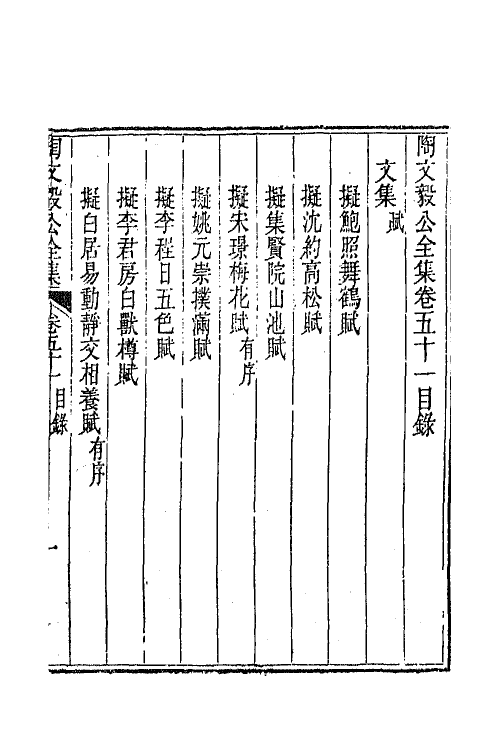 陶文毅公全集卷五十一目錄
文集 賦
擬鮑照舞鶴賦
擬沈約高松賦
擬集賢院山池賦
擬宋璟梅花賦 有序
擬姚元崇撲滿賦
擬李程日五色賦
擬李君房白獸樽賦
擬白居易動靜交相養賦 有序
陶文毅公全集 卷五十一 目錄 一